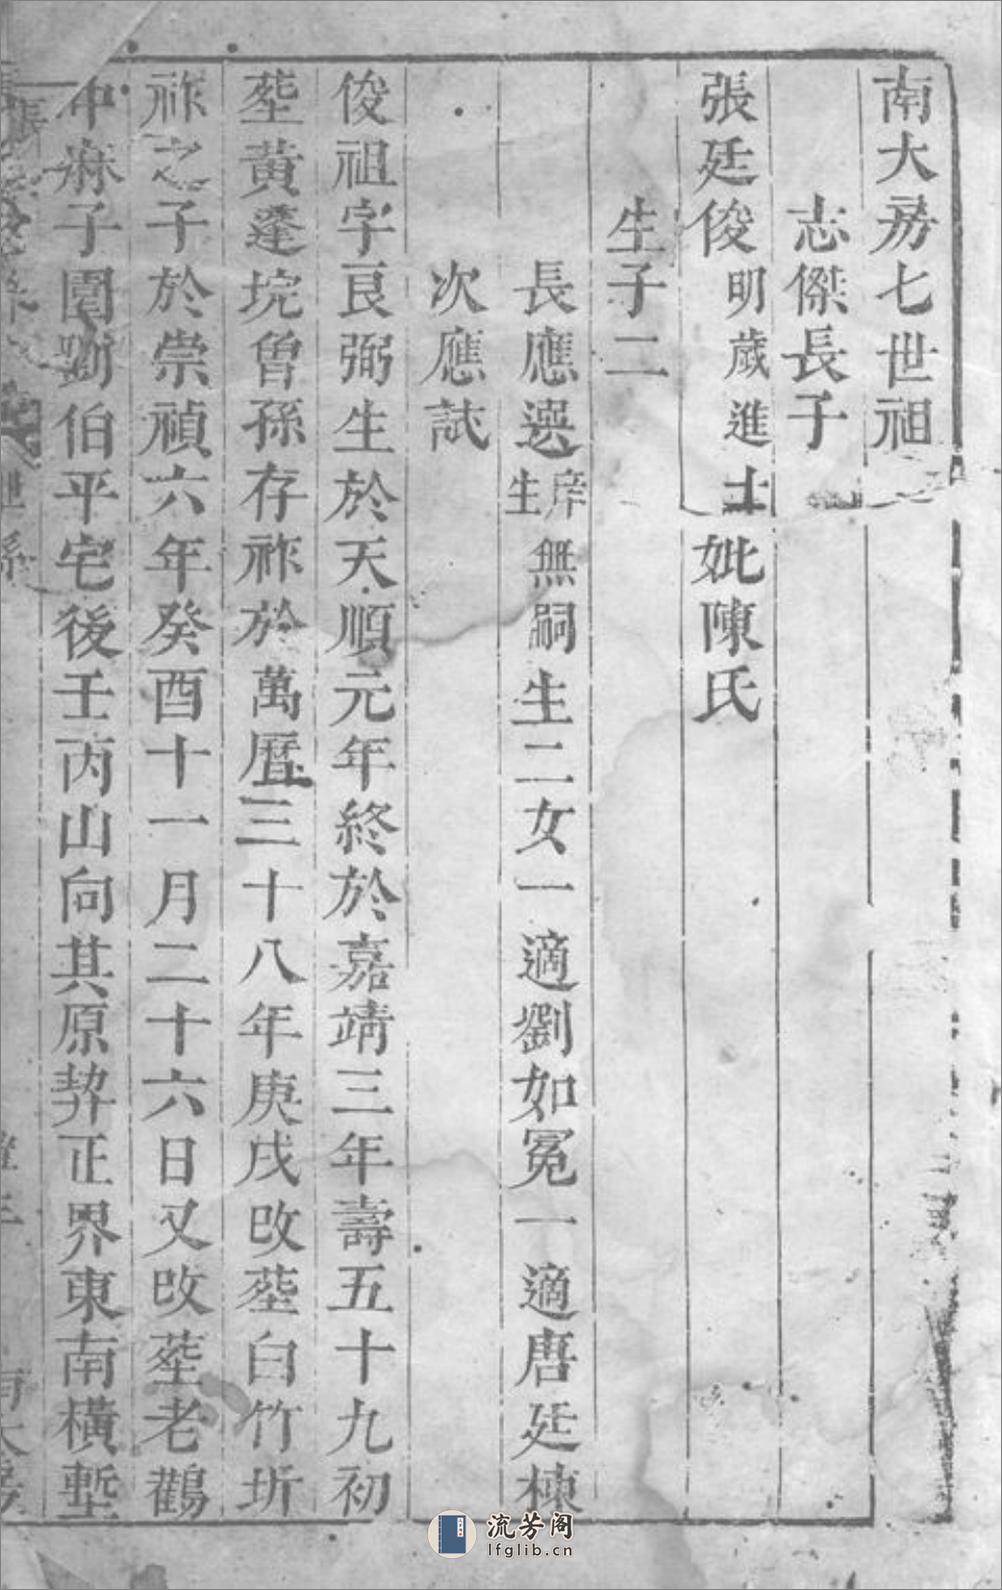 南大房七世祖
志傑長子
張廷俊明歲進士妣陳氏
生子二
長應選庠生無嗣生二女一適劉如冕一適唐廷棟
次應試
俊祖字良弼生於天順元年終於嘉靖三年壽五十九初
塟黃蓬垸曾孫存祚於萬曆三十八年庚戌改塟白竹圻
祚之子於崇禎六年癸酉十一月二十六日又改塟老鸛
冲麻子園劉伯平宅後壬丙山向其原契正界東南橫塹
流芳阁
lfglib.cn